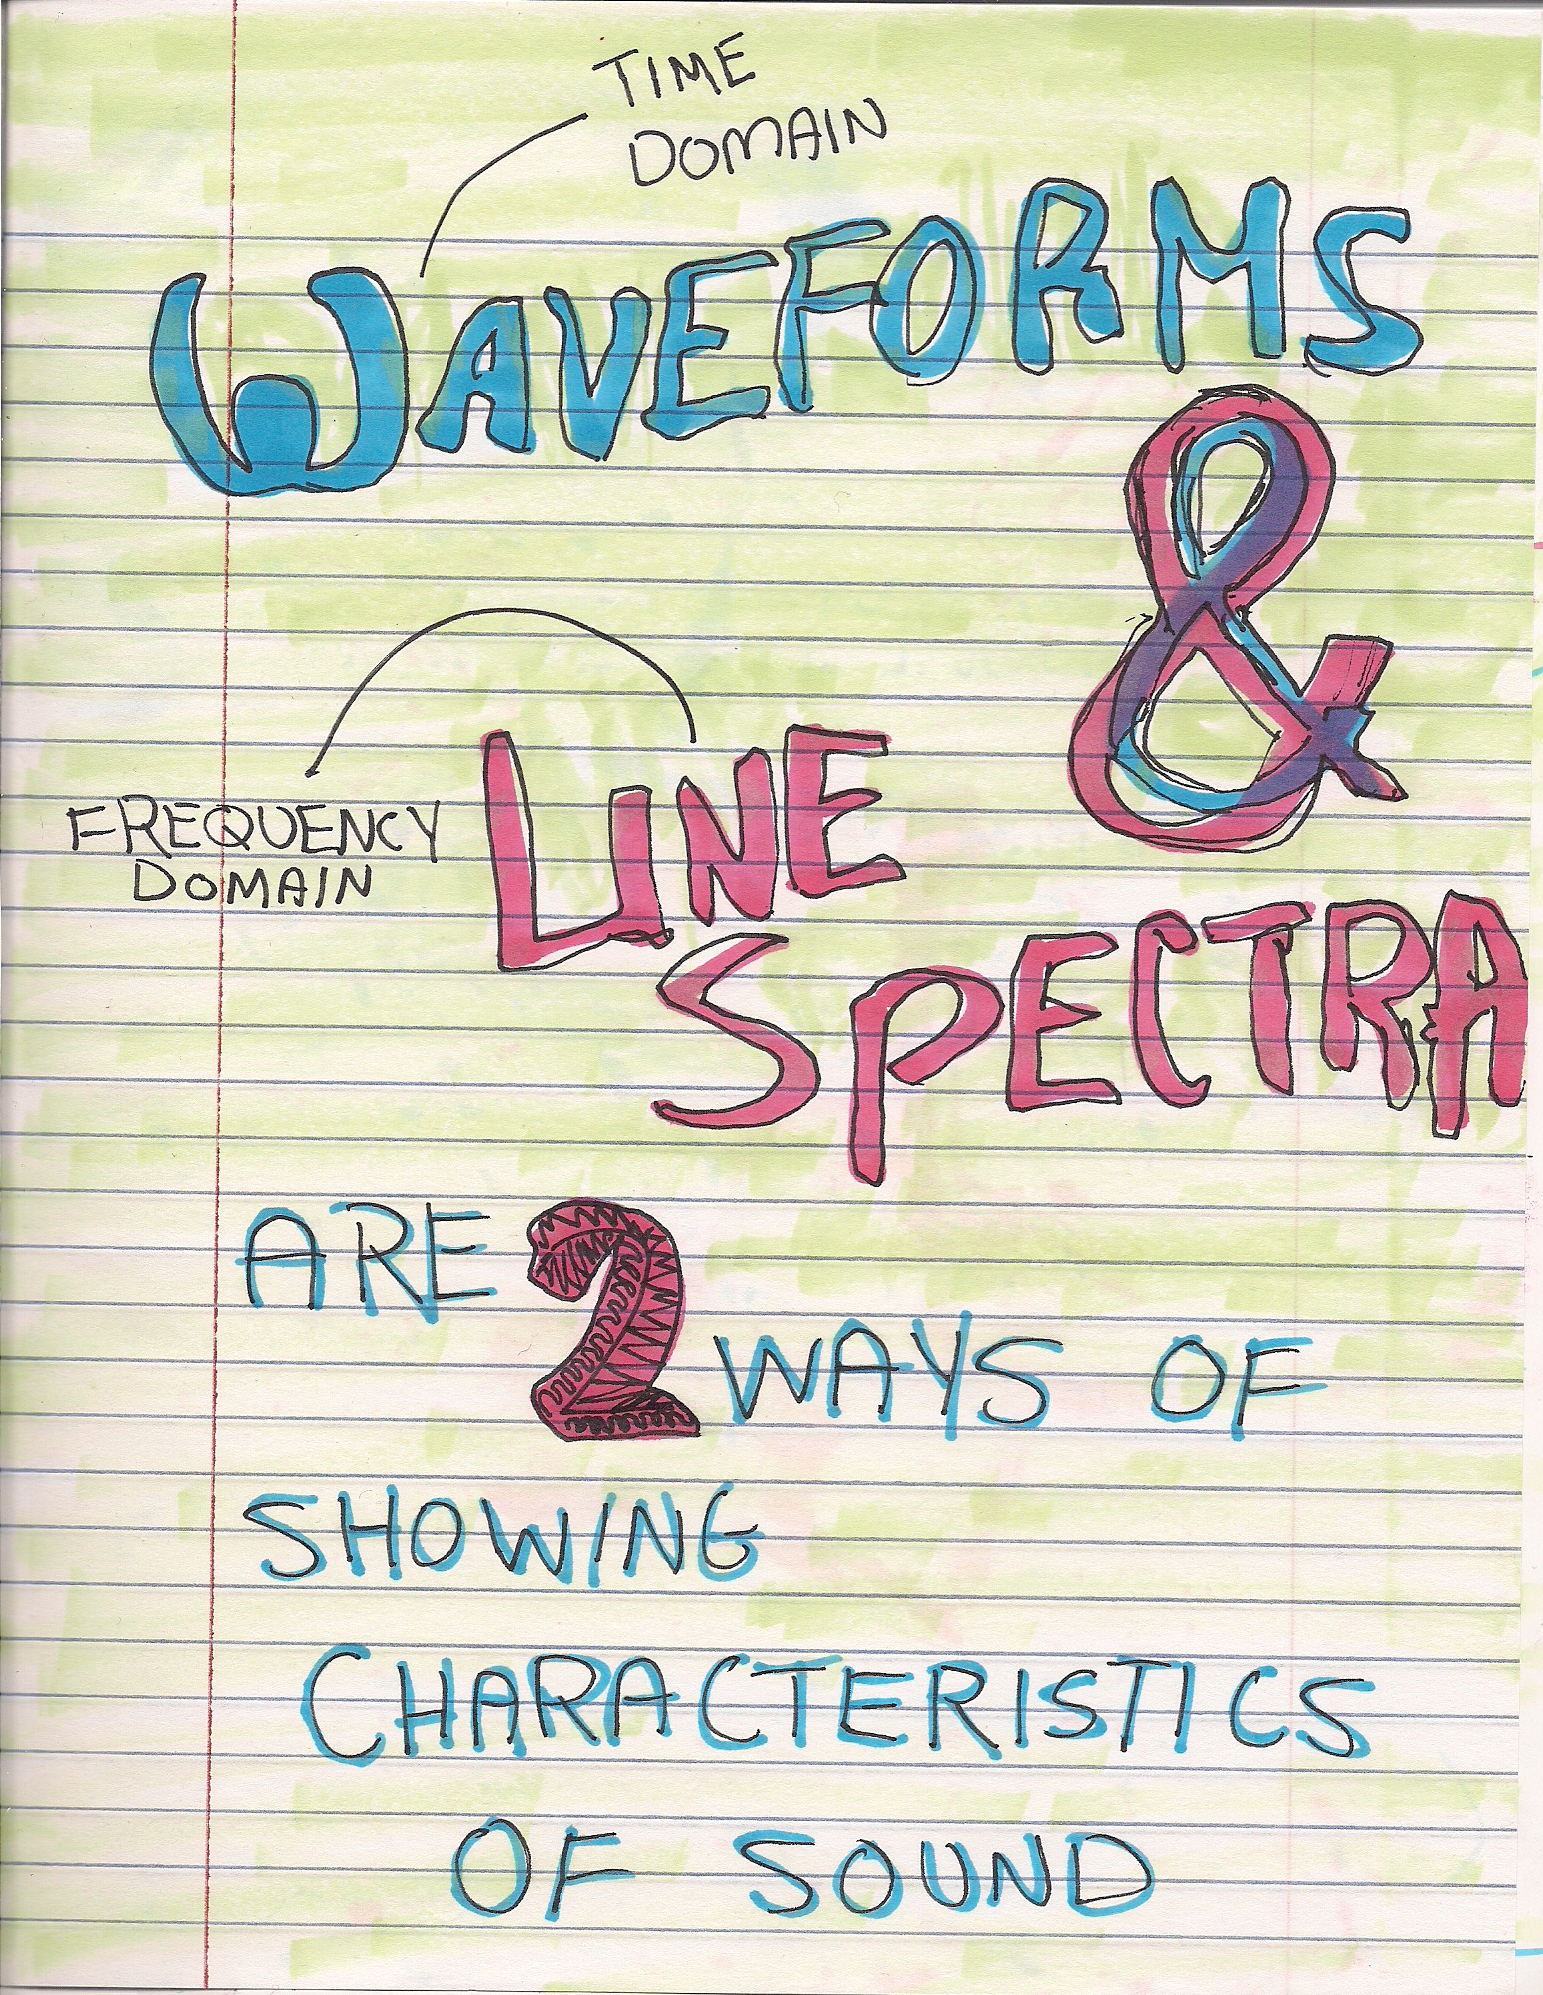 TIME
DOMAIN
WAVEFORMS
&
FREQUENCY
DOMAIN
LINE
SPECTRA
ARE 2 WAYS OF
SHOWING
CHARACTERISTICS
OF SOUND